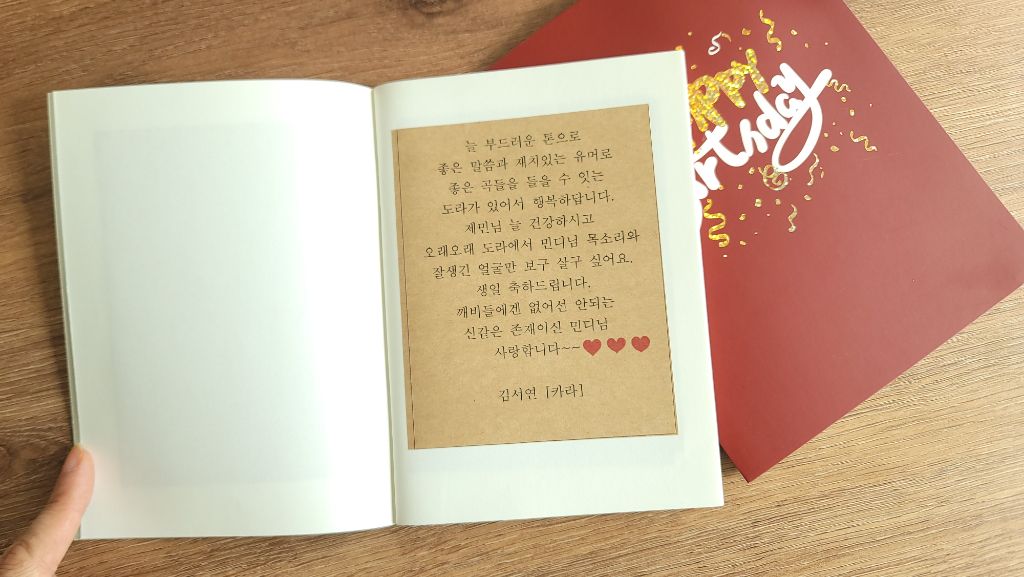 늘 부드러운 톤으로
좋은 말씀과 재치있는 유머로
좋은 곡들을 들을 수 잇는
도라가 있어서 행복하답니다.
제민님 늘 건강하시고
오래오래 도라에서 민디님 목소리와
잘생긴 얼굴만 보구 살구 싶어요.
생일 축하드립니다.
깨비들에겐 없어선 안되는
신같은 존재이신 민디님
사랑합니다~~
김서연 [카라]
birthday